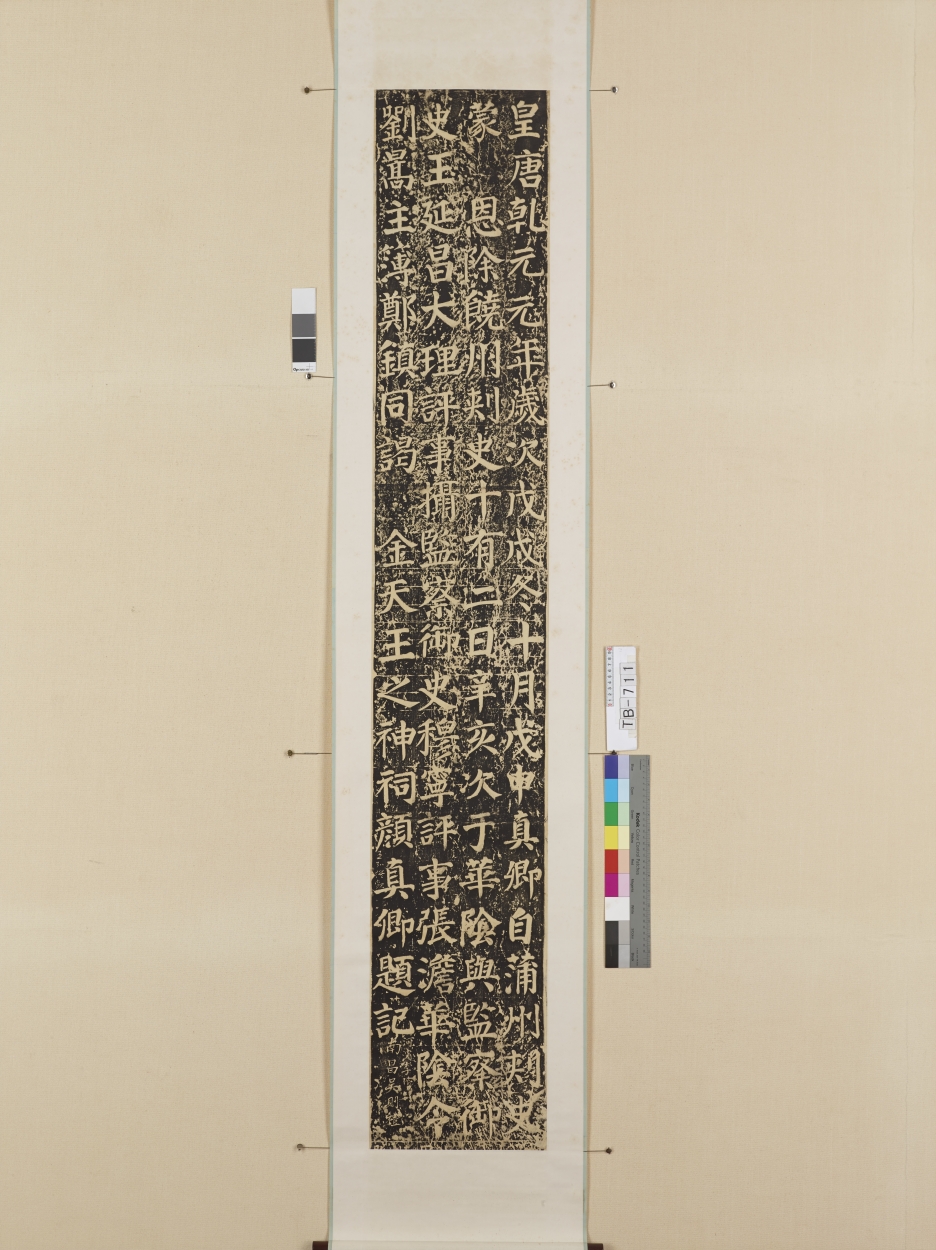 皇唐乹元元年歲次戊戌冬十月戊申真卿自蒲州刾史
蒙恩除饒州刾史十有二日辛亥次于華陰與監察御
史王延昌大理評事攝監察御史穆寧評事張澹華陰令
劉暠主薄鄭鎮同謁金天王之神祠顔真卿題記
南昌吳
TB-711